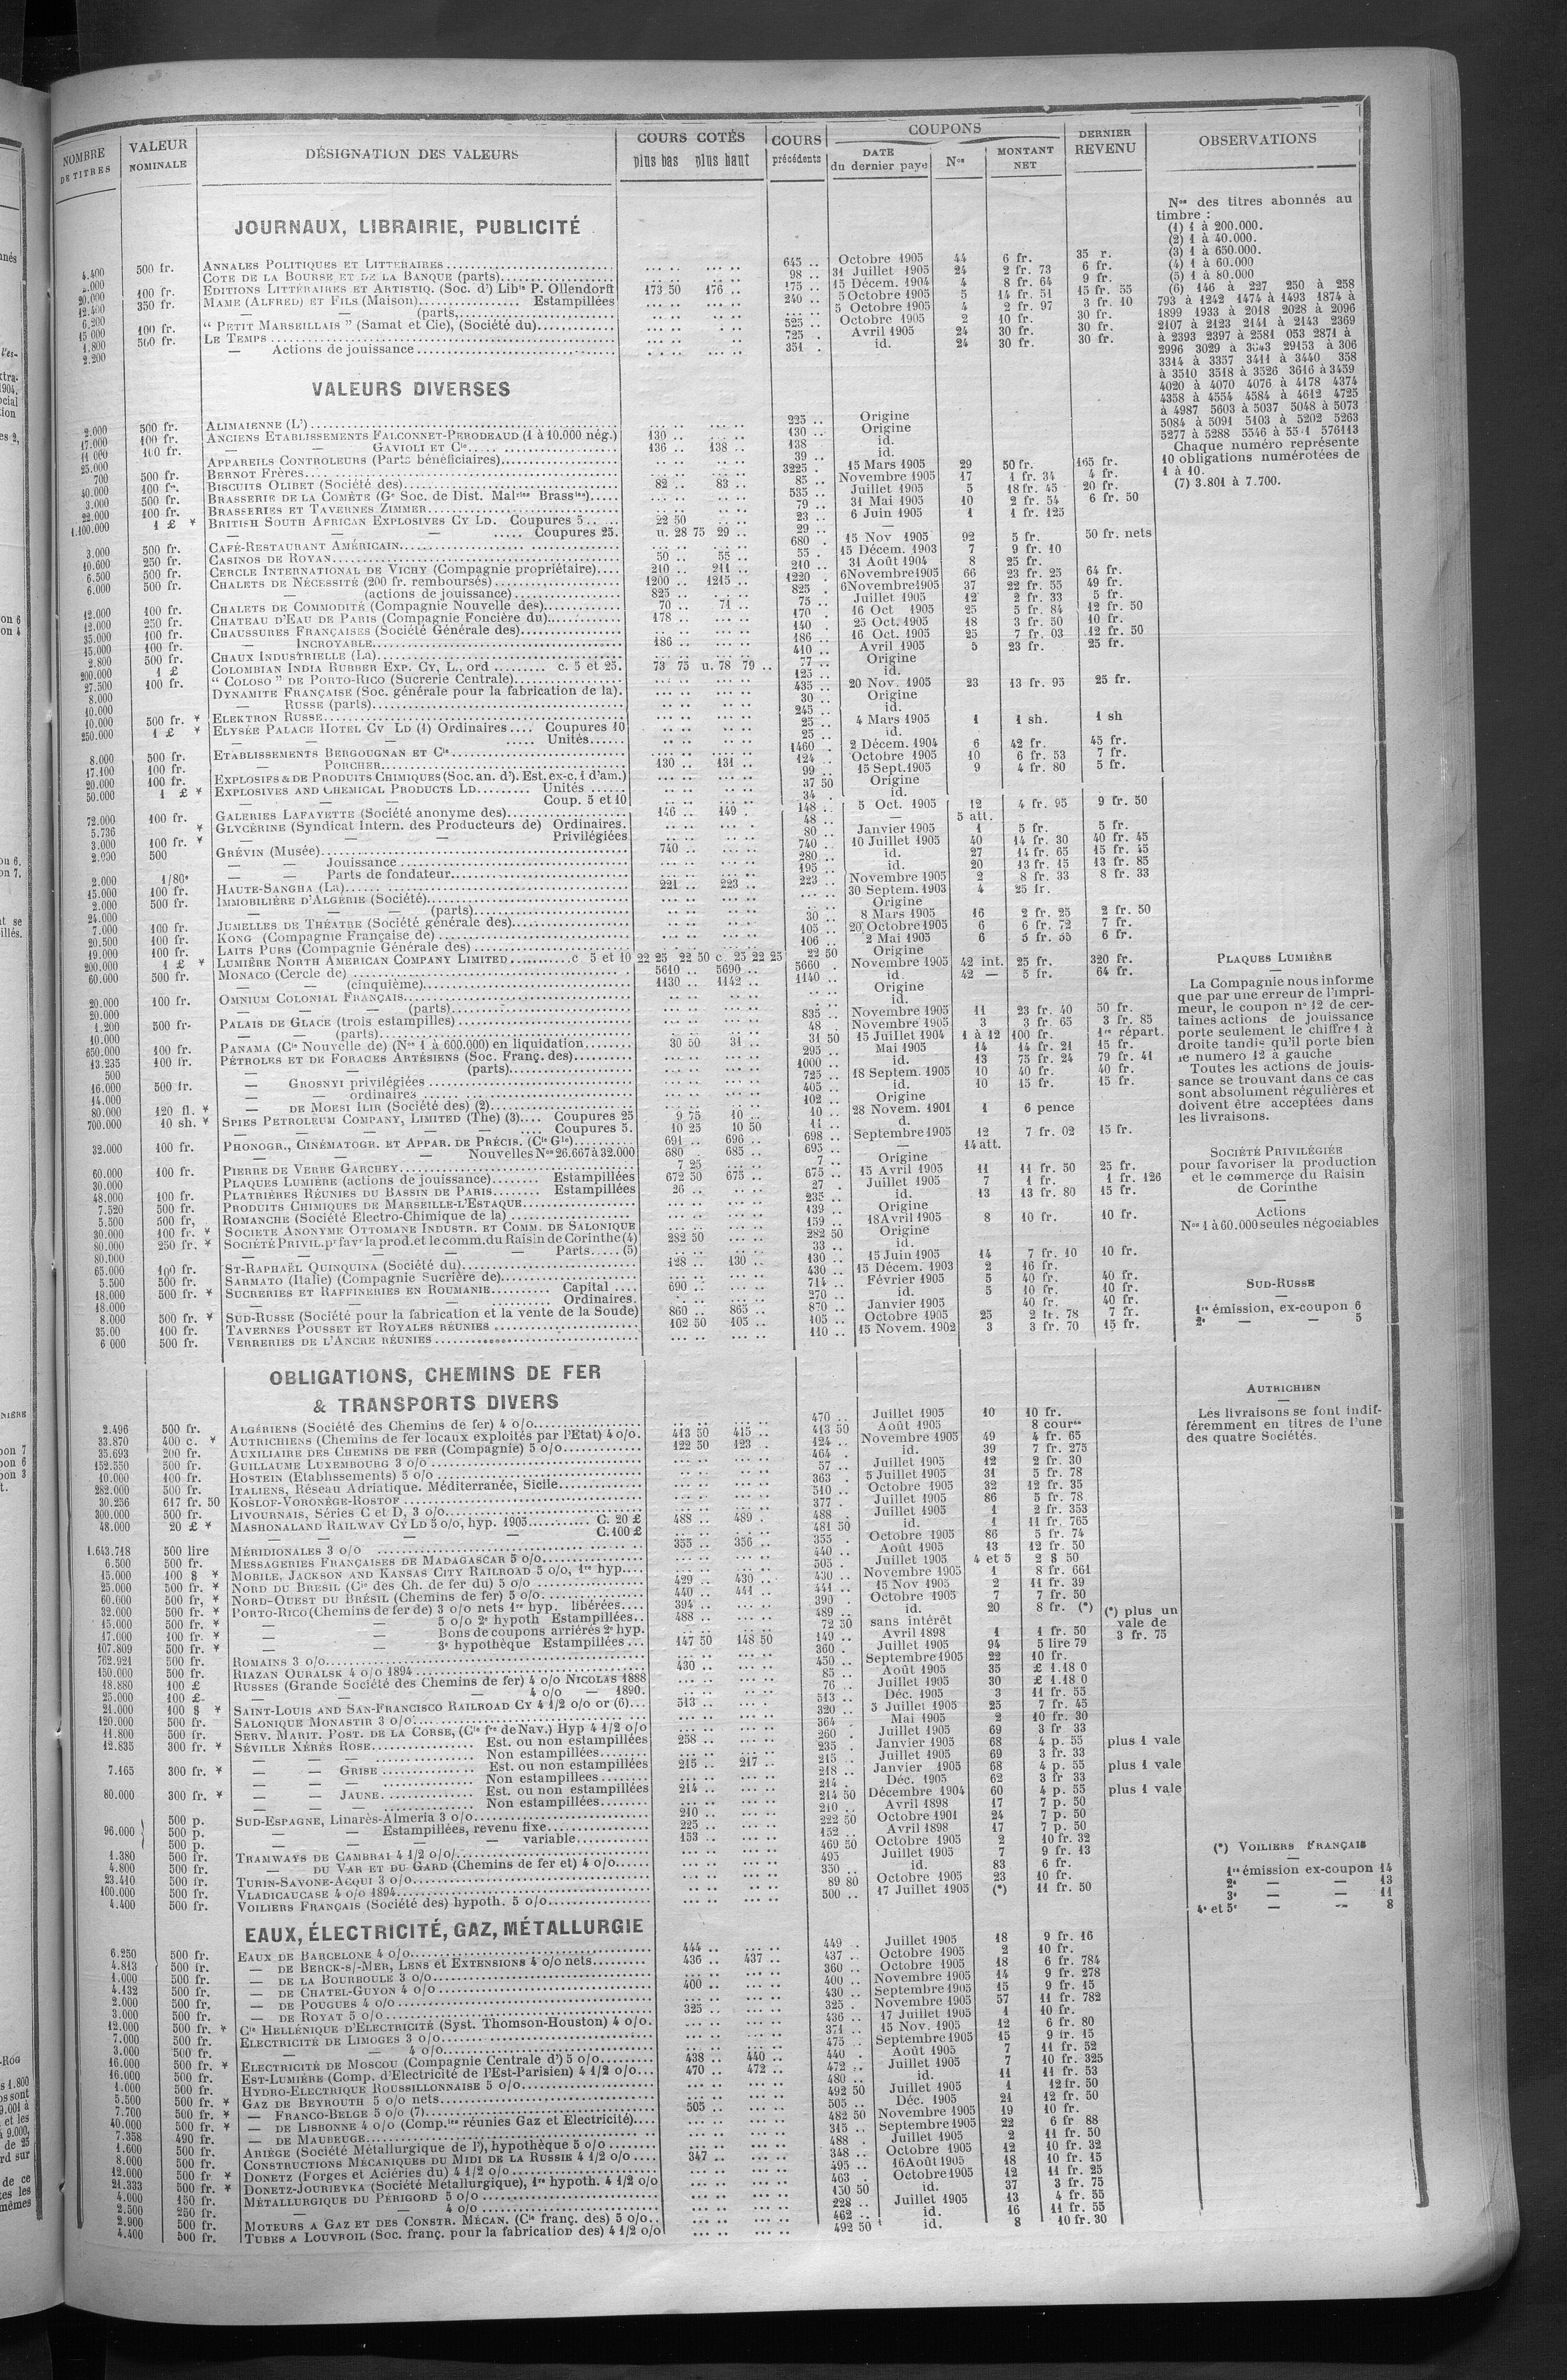 NOMBRE DE TITRES | VALEUR NOMINALE | DÉSIGNATION DES VALEURS | COURS COTÉS plus bas plus haut | COURS précédents | COUPONS DATE du dernier payé Nos MONTANT NET | DERNIER REVENU | OBSERVATIONS
JOURNAUX, LIBRAIRIE, PUBLICITÉ
4.400 500 fr. ANNALES POLITIQUES ET LITTERAIRES 645 .. Octobre 1905 44 6 fr. 35 r.
2.000 COTE DE LA BOURSE ET DE LA BANQUE (parts) 98 .. 31 Juillet 1905 24 2 fr. 73 6 fr.
20.000 100 fr. EDITIONS LITTÉRAIRES ET ARTISTIQ. (Soc. d') Libie P. Ollendorff 173 50 176 .. 175 .. 15 Décem. 1904 4 8 fr. 64 9 fr.
12.400 350 fr. MAME (ALFRED) ET FILS (Maison) Estampillées 240 .. 5 Octobre 1905 5 14 fr. 51 15 fr. 55
6.200 — — (parts) 5 Octobre 1905 4 2 fr. 97 3 fr. 10
15 000 100 fr. “ PETIT MARSEILLAIS ” (Samat et Cie), (Société du) 525 .. Octobre 1905 2 10 fr. 30 fr.
1.800 500 fr. LE TEMPS 725 . Avril 1905 24 30 fr. 30 fr.
2.200 — Actions de jouissance 351 . id. 24 30 fr. 30 fr.
VALEURS DIVERSES
2.000 500 fr. ALIMAIENNE (L') 225 .. Origine
17.000 100 fr. ANCIENS ETABLISSEMENTS FALCONNET-PERODEAUD (1 à 10.000 nég.) 130 .. 130 .. Origine
11 000 100 fr. — — GAVIOLI ET Cie 136 .. 138 .. 138 .. id.
25.000 APPAREILS CONTROLEURS (Parts bénéficiaires) 39 .. id.
700 500 fr. BERNOT FRÈRES 3225 . 15 Mars 1905 29 50 fr. 165 fr.
40.000 100 fr. BISCUITS OLIBET (Société des) 82 .. 83 .. 85 .. Novembre 1905 17 1 fr. 34 4 fr.
3.000 500 fr. BRASSERIE DE LA COMÈTE (Ge Soc. de Dist. Malries Brassies) 535 .. Juillet 1905 5 18 fr. 45 20 fr.
22.000 100 fr. BRASSERIES ET TAVERNES ZIMMER 79 .. 31 Mai 1905 10 2 fr. 54 6 fr. 50
1.100.000 1 £ * BRITISH SOUTH AFRICAN EXPLOSIVES CY LD. Coupures 5 22 50 23 .. 6 Juin 1905 1 1 fr. 125
— — — Coupures 25. u. 28 75 29 .. 29 .. —
3.000 500 fr. CAFÉ-RESTAURANT AMÉRICAIN 680 . 15 Nov 1905 92 5 fr. 50 fr. nets
10.600 250 fr. CASINOS DE ROYAN 50 .. 55 .. 55 . 15 Décem. 1903 7 9 fr. 10
6.500 500 fr. CERCLE INTERNATIONAL DE VICHY (Compagnie propriétaire) 210 .. 211 .. 210 .. 31 Août 1904 8 25 fr.
6.000 500 fr. CHALETS DE NÉCESSITÉ (200 fr. remboursés) 1200 .. 1215 .. 1220 . 6 Novembre 1905 66 23 fr. 25 64 fr.
— (actions de jouissance) 825 .. 825 . 6 Novembre 1905 37 22 fr. 55 49 fr.
12.000 100 fr. CHALETS DE COMMODITÉ (Compagnie Nouvelle des) 70 .. 71 .. 75 .. Juillet 1905 12 2 fr. 33 5 fr.
12.000 250 fr. CHATEAU D'EAU DE PARIS (Compagnie Foncière du) 178 .. 170 . 16 Oct 1905 25 5 fr. 84 12 fr. 50
35.000 100 fr. CHAUSSURES FRANÇAISES (Société Générale des) 140 . 25 Oct. 1905 18 3 fr. 50 10 fr.
15.000 100 fr. — INCROYABLE 186 .. 186 .. 16 Oct. 1905 25 7 fr. 03 12 fr. 50
2.800 500 fr. CHAUX INDUSTRIELLE (La) 410 .. Avril 1905 5 23 fr. 25 fr.
200.000 1 £ COLOMBIAN INDIA RUBBER EXP. CY, L., ord c. 5 et 25. 73 75 u. 78 79 .. 77 .. Origine
27.500 100 fr. “ COLOSO ” DE PORTO-RICO (Sucrerie Centrale) 125 .. id.
8.000 DYNAMITE FRANÇAISE (Soc. générale pour la fabrication de la). 435 .. 20 Nov. 1905 23 13 fr. 95 25 fr.
10.000 — RUSSE (parts) 30 .. Origine
10.000 500 fr. * ELEKTRON RUSSE 245 .. id.
250.000 1 £ * ELYSÉE PALACE HOTEL CY LD (1) Ordinaires Coupures 10 25 .. 4 Mars 1905 1 1 sh. 1 sh
— — — Unités 25 .. id.
8.000 500 fr. ETABLISSEMENTS BERGOUGNAN ET Cie 1460 . 2 Décem. 1904 6 42 fr. 45 fr.
17.100 100 fr. — PORCHER 130 .. 131 .. 124 .. Octobre 1905 10 6 fr. 53 7 fr.
20.000 100 fr. EXPLOSIFS & DE PRODUITS CHIMIQUES (Soc. an. d'). Est. ex-c. 1 d'am.) 99 .. 15 Sept. 1905 9 4 fr. 80 5 fr.
50.000 1 £ * EXPLOSIVES AND CHEMICAL PRODUCTS LD Unités 37 50 Origine
— — — Coup. 5 et 10 34 . id.
72.000 100 fr. GALERIES LAFAYETTE (Société anonyme des) 146 .. 149 . 148 .. 5 Oct. 1905 12 4 fr. 95 9 fr. 50
5.736 * GLYCÉRINE (Syndicat Intern. des Producteurs de) Ordinaires. 48 .. — 5 att.
3.000 100 fr. * — — — Privilégiées 80 .. Janvier 1905 1 5 fr. 5 fr.
2.000 500 GRÉVIN (Musée) 740 .. 740 .. 10 Juillet 1905 40 14 fr. 30 40 fr. 45
— — Jouissance 280 .. id. 27 14 fr. 65 15 fr. 45
2.000 1/80e — — Parts de fondateur 195 .. id. 20 13 fr. 15 13 fr. 85
15.000 100 fr. HAUTE-SANGHA (La) 221 .. 223 .. 223 .. Novembre 1905 2 8 fr. 33 8 fr. 33
2.000 500 fr. IMMOBILIÈRE D'ALGÉRIE (Société) 30 Septem. 1903 4 25 fr.
24.000 — — — (parts) Origine
7.000 100 fr. JUMELLES DE THÉATRE (Société générale des) 30 .. 8 Mars 1905 16 2 fr. 25 2 fr. 50
20.500 100 fr. KONG (Compagnie Française de) 105 .. 20 Octobre 1905 6 6 fr. 72 7 fr.
19.000 100 fr. LAITS PURS (Compagnie Générale des) 106 .. 2 Mai 1905 6 5 fr. 55 6 fr.
200.000 1 £ * LUMIÈRE NORTH AMERICAN COMPANY LIMITED c 5 et 10 22 25 22 50 c. 25 22 25 22 50 Origine
60.000 500 fr. MONACO (Cercle de) 5610 .. 5690 .. 5660 . Novembre 1905 42 int. 25 fr. 320 fr.
— — (cinquième) 1130 .. 1142 .. 1140 .. id. 42 — 5 fr. 64 fr.
20.000 100 fr. OMNIUM COLONIAL FRANÇAIS Origine
20.000 — — — (parts) id.
1.200 500 fr. PALAIS DE GLACE (trois estampilles) 835 .. Novembre 1905 11 23 fr. 40 50 fr.
10.000 — — (parts) 48 .. Novembre 1905 3 3 fr. 65 3 fr. 85
650.000 100 fr. PANAMA (Cie Nouvelle de) (Nos 1 à 600.000) en liquidation 30 50 31 .. 31 50 15 Juillet 1904 1 à 12 100 fr. 1re répart.
13.235 100 fr. PÉTROLES ET DE FORAGES ARTÉSIENS (Soc. Franç. des) 295 .. Mai 1905 14 14 fr. 21 15 fr.
500 — — (parts) 1000 .. id. 13 75 fr. 24 79 fr. 41
16.000 500 fr. — GROSNYI privilégiées 725 .. 18 Septem. 1905 10 40 fr. 40 fr.
14.000 — — ordinaires 405 .. id. 10 15 fr. 15 fr.
80.000 120 fl. * — DE MOESI ILIR (Société des) (2) 102 .. Origine
700.000 10 sh. * SPIES PETROLEUM COMPANY, LIMITED (The) (3) Coupures 25 9 75 10 .. 10 .. 28 Novem. 1901 1 6 pence
— — — Coupures 5. 10 25 10 50 11 .. d.
32.000 100 fr. PHONOGR., CINÉMATOGR. ET APPAR. DE PRÉCIS. (Cie Gle) 691 .. 696 .. 698 .. Septembre 1905 12 7 fr. 02 15 fr.
— — — Nouvelles Nos 26.667 à 32.000 680 . 685 .. 695 .. — 14 att.
60.000 100 fr. PIERRE DE VERRE GARCHEY 7 25 7 .. Origine
30.000 PLAQUES LUMIÈRE (actions de jouissance) Estampillées 672 50 675 .. 675 .. 15 Avril 1905 11 11 fr. 50 25 fr.
48.000 100 fr. PLATRIÈRES RÉUNIES DU BASSIN DE PARIS Estampillées 26 .. 27 . Juillet 1905 7 1 fr. 1 fr. 126
7.520 500 fr. PRODUITS CHIMIQUES DE MARSEILLE-L'ESTAQUE 235 .. id. 13 13 fr. 80 15 fr.
5.500 500 fr, ROMANCHE (Société Electro-Chimique de la) 139 .. Origine
30.000 100 fr. * SOCIETE ANONYME OTTOMANE INDUSTR. ET COMM. DE SALONIQUE 159 .. 18 Avril 1905 8 10 fr. 10 fr.
80.000 250 fr. * SOCIÉTÉ PRIVIL. pr favr la prod. et le comm. du Raisin de Corinthe (4) 282 50 282 50 Origine
80.000 — — — Parts (5) 33 .. id.
65.000 100 fr. ST-RAPHAËL QUINQUINA (Société du) 128 .. 130 .. 130 .. 15 Juin 1905 14 7 fr. 10 10 fr.
5.500 500 fr. SARMATO (Italie) (Compagnie Sucrière de) 430 .. 15 Décem. 1903 2 16 fr.
18.000 500 fr. * SUCRERIES ET RAFFINERIES EN ROUMANIE Capital 690 .. 714 .. Février 1905 5 40 fr. 40 fr.
18.000 — — — Ordinaires. 270 .. id. 5 10 fr. 10 fr.
8.000 500 fr. * SUD-RUSSE (Société pour la fabrication et la vente de la Soude) 860 .. 865 .. 870 .. Janvier 1905 40 fr. 40 fr.
35.00 100 fr. TAVERNES POUSSET ET ROYALES RÉUNIES 102 50 105 .. 105 .. Octobre 1905 25 2 fr. 78 7 fr.
6 000 500 fr. VERRERIES DE L'ANCRE RÉUNIES 110 .. 15 Novem. 1902 3 3 fr. 70 15 fr.
OBLIGATIONS, CHEMINS DE FER
& TRANSPORTS DIVERS
2.496 500 fr. ALGÉRIENS (Société des Chemins de fer) 4 o/o 470 .. Juillet 1905 10 10 fr.
33.870 400 c. * AUTRICHIENS (Chemins de fer locaux exploités par l'Etat) 4 o/o. 413 50 415 .. 413 50 Août 1905 8 cour.
35.693 200 fr. AUXILIAIRE DES CHEMINS DE FER (Compagnie) 5 o/o 122 50 123 .. 124 .. Novembre 1905 49 4 fr. 65
152.550 500 fr. GUILLAUME LUXEMBOURG 3 o/o 464 . id. 39 7 fr. 275
10.000 100 fr. HOSTEIN (Etablissements) 5 o/o 57 .. Juillet 1905 12 2 fr. 30
282.000 500 fr. ITALIENS, Réseau Adriatique. Méditerranée, Sicile 363 . 5 Juillet 1905 31 5 fr. 78
30.256 617 fr. 50 KOSLOF-VORONÈGE-ROSTOF 510 .. Octobre 1905 32 12 fr. 35
300.000 500 fr. LIVOURNAIS, Séries C et D, 3 o/o 377 . Juillet 1905 86 5 fr. 78
48.000 20 £ * MASHONALAND RAILWAY CY LD 5 o/o, hyp. 1905 C. 20 £ 488 .. 489 . 488 . Juillet 1905 1 2 fr. 353
— — — C. 100 £ 481 50 id. 1 11 fr. 765
1.643.718 500 lire MÉRIDIONALES 3 o/o 355 .. 356 .. 355 . Octobre 1905 86 5 fr. 74
6.500 500 fr. MESSAGERIES FRANÇAISES DE MADAGASCAR 5 o/o 440 .. Août 1905 13 12 fr. 50
15.000 100 $ * MOBILE, JACKSON AND KANSAS CITY RAILROAD 5 o/o, 1re hyp 505 . Juillet 1905 4 et 5 2 $ 50
25.000 500 fr. * NORD DU BRESIL (Cie des Ch. de fer du) 5 o/o 429 .. 430 .. 430 .. Novembre 1905 1 8 fr. 661
60.000 500 fr, * NORD-OUEST DU BRÉSIL (Chemins de fer) 5 o/o 440 .. 441 .. 441 .. 15 Nov 1905 2 11 fr. 39
32.000 500 fr. * PORTO-RICO (Chemins de fer de) 3 o/o nets 1re hyp. libérées 394 .. 390 . Octobre 1905 7 7 fr. 50
15.000 500 fr. * — — 5 o/o 2e hypoth Estampillées 488 .. 489 .. id. 20 8 fr. (*) (*) plus un vale de 3 fr. 75
17.000 100 fr. * — — Bons de coupons arriérés 2e hyp. 72 50 sans intérêt
107.809 500 fr. * — — 3e hypothèque Estampillées 147 50 148 50 149 .. Avril 1898 1 1 fr. 50
762.921 500 fr. ROMAINS 3 o/o 360 . Juillet 1905 94 5 lire 79
150.000 500 fr. RIAZAN OURALSK 4 o/o 1894 430 .. 450 .. Septembre 1905 22 10 fr.
18.880 100 £ RUSSES (Grande Société des Chemins de fer) 4 o/o NICOLAS 1888 85 .. Août 1905 35 £ 1.18 0
25.000 100 £ — — — 4 o/o — 1890. 76 .. Juillet 1905 30 £ 1.18 0
21.000 100 $ * SAINT-LOUIS AND SAN-FRANCISCO RAILROAD CY 4 1/2 o/o or (6) 513 .. 513 .. Déc. 1905 3 11 fr. 55
120.000 500 fr. SALONIQUE MONASTIR 3 o/o 320 .. 3 Juillet 1905 25 7 fr. 45
11.800 500 fr. SERV. MARIT. POST. DE LA CORSE, (Cie fse de Nav.) Hyp 4 1/2 o/o 364 . Mai 1905 2 10 fr. 30
12.835 300 fr. * SÉVILLE XÉRÈS ROSE Est. ou non estampillées 258 .. 260 . Juillet 1905 69 3 fr 33
Non estampillées 235 . Janvier 1905 68 4 p. 55 plus 1 vale
7.165 300 fr. * — — GRISE Est. ou non estampillées 215 .. 217 .. 215 .. Juillet 1905 69 3 fr. 33
— — — Non estampillees 218 .. Janvier 1905 68 4 p. 55 plus 1 vale
80.000 300 fr. * — — JAUNE Est. ou non estampillées 214 .. 214 . Déc. 1905 62 3 fr 33
— — — Non estampillées 214 50 Décembre 1904 60 4 p. 55 plus 1 vale
500 p. SUD-ESPAGNE, Linarès-Almeria 3 o/o 210 .. 210 .. Avril 1898 17 7 p. 50
96.000 500 p. — — Estampillées, revenu fixe 225 .. 222 50 Octobre 1901 24 7 p. 50
500 p. — — — variable 153 .. 152 .. Avril 1898 17 7 p. 50
1.380 500 fr. TRAMWAYS DE CAMBRAI 4 1/2 o/o 469 50 Octobre 1905 2 10 fr. 32
4.800 500 fr. — DU VAR ET DU GARD (Chemins de fer et) 4 o/o 495 Juillet 1905 7 9 fr. 13
23.410 500 fr. TURIN-SAVONE-ACQUI 3 o/o 350 .. id. 83 6 fr.
100.000 500 fr. VLADICAUCASE 4 o/o 1894 89 80 Octobre 1905 23 10 fr.
4.400 500 fr. VOILIERS FRANÇAIS (Société des) hypoth. 5 o/o 500 .. 17 Juillet 1905 (*) 11 fr. 50
EAUX, ÉLECTRICITÉ, GAZ, MÉTALLURGIE
6.250 500 fr. EAUX DE BARCELONE 4 o/o 444 .. 449 . Juillet 1905 18 9 fr. 16
4.813 500 fr. — DE BERCK-S/-MER, LENS et EXTENSIONS 4 o/o nets 436 .. 437 .. 437 .. Octobre 1905 2 10 fr.
1.000 500 fr. — DE LA BOURBOULE 3 o/o 360 .. Octobre 1905 18 6 fr. 784
4.132 500 fr. — DE CHATEL-GUYON 4 o/o 400 .. 400 .. Novembre 1905 14 9 fr. 278
2.000 500 fr. — DE POUGUES 4 o/o 430 .. Septembre 1905 15 9 fr. 15
3.000 500 fr. — DE ROYAT 5 o/o 325 .. 325 . Novembre 1905 57 11 fr. 782
12.000 500 fr. * Cie HELLÉNIQUE D'ELECTRICITÉ (Syst. Thomson-Houston) 4 o/o. 436 .. 17 Juillet 1905 1 10 fr.
7.000 500 fr. ELECTRICITÉ DE LIMOGES 3 o/o 371 .. 15 Nov. 1905 12 6 fr. 80
3.000 500 fr. — — 4 o/o 475 .. Septembre 1905 15 9 fr. 15
16.000 500 fr. * ELECTRICITÉ DE MOSCOU (Compagnie Centrale d') 5 o/o 438 .. 440 .. 440 . Août 1905 7 11 fr. 52
16.000 500 fr. EST-LUMIÈRE (Comp. d'Electricité de l'Est-Parisien) 4 1/2 o/o 470 .. 472 .. 472 .. Juillet 1905 7 10 fr. 325
1.000 500 fr. HYDRO-ELECTRIQUE ROUSSILLONNAISE 5 o/o 480 .. id. 11 11 fr. 53
5.500 500 fr. * GAZ DE BEYROUTH 5 o/o nets 492 50 Juillet 1905 1 12 fr. 50
7.700 500 fr. * — FRANCO-BELGE 5 o/o (7) 505 .. 505 .. Déc. 1905 21 12 fr. 50
40.000 500 fr. * — DE LISBONNE 4 o/o (Comp.ies réunies Gaz et Electricité) 482 50 Novembre 1905 19 10 fr.
7.358 490 fr. — DE MAUBEUGE 315 .. Septembre 1905 22 6 fr 88
1.600 500 fr. ARIÈGE (Société Métallurgique de l'), hypothèque 5 o/o 488 . Juillet 1905 2 11 fr. 50
8.000 500 fr. CONSTRUCTIONS MÉCANIQUES DU MIDI DE LA RUSSIE 4 1/2 o/o 347 .. 348 .. Octobre 1905 12 10 fr. 32
12.000 500 fr * DONETZ (Forges et Aciéries du) 4 1/2 o/o 495 .. 16 Août 1905 18 10 fr. 15
21.333 500 fr. * DONETZ-JOURIEVKA (Société Métallurgique), 1re hypoth. 4 1/2 o/o 463 . Octobre 1905 12 11 fr. 25
4.000 150 fr. MÉTALLURGIQUE DU PÉRIGORD 5 o/o 150 50 id. 37 3 fr. 75
2.500 250 fr. — — 4 o/o 228 .. Juillet 1905 13 4 fr. 55
2.900 500 fr. MOTEURS A GAZ ET DES CONSTR. MÉCAN. (Cie franç. des) 5 o/o 462 .. id. 16 11 fr. 55
4.400 500 fr. TUBES A LOUVROIL (Soc. franç. pour la fabrication des) 4 1/2 o/o 492 50 id. 8 10 fr. 30
Nos des titres abonnés au
timbre :
(1) 1 à 200.000.
(2) 1 à 40.000.
(3) 1 à 650.000.
(4) 1 à 60.000
(5) 1 à 80.000
(6) 146 à 227 250 à 258
793 à 1242 1474 à 1493 1874 à
1899 1933 à 2018 2028 à 2096
2107 à 2123 2141 à 2143 2369
à 2393 2397 à 2581 053 2871 à
2996 3029 à 3543 29153 à 306
3314 à 3357 3411 à 3440 358
à 3510 3518 à 3526 3616 à 3459
4020 à 4070 4076 à 4178 4374
4358 à 4554 4584 à 4612 4725
à 4987 5603 à 5037 5048 à 5073
5084 à 5091 5103 à 5202 5263
5277 à 5288 5546 à 55 1 576113
Chaque numéro représente
10 obligations numérotées de
1 à 10.
(7) 3.801 à 7.700.
PLAQUES LUMIÈRE
La Compagnie nous informe
que par une erreur de l'impri-
meur, le coupon n° 12 de cer-
taines actions de jouissance
porte seulement le chiffre 1 à
droite tandis qu'il porte bien
le numéro 12 à gauche
Toutes les actions de jouis-
sance se trouvant dans ce cas
sont absolument régulières et
doivent être acceptées dans
les livraisons.
SOCIÉTÉ PRIVILÉGIÉE
pour favoriser la production
et le commerce du Raisin
de Corinthe
Actions
Nos 1 à 60.000 seules négociables
SUD-RUSSE
1re émission, ex-coupon 6
2e — — 5
AUTRICHIEN
Les livraisons se font indif-
féremment en titres de l'une
des quatre Sociétés.
(*) VOILIERS FRANÇAIS
1re émission ex-coupon 14
2e — — 13
3e — — 11
4e et 5e — — 8